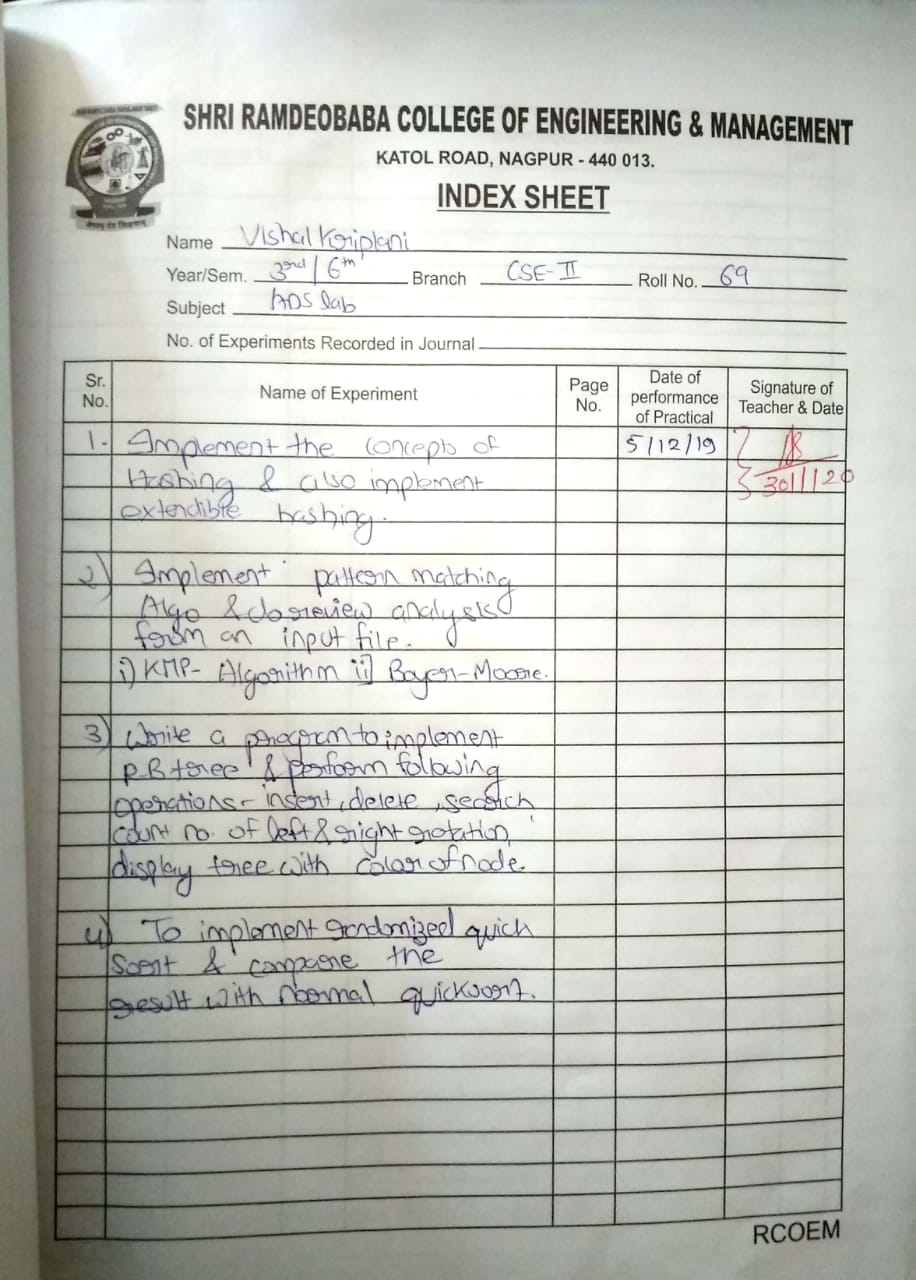 SHRI RAMDEOBABA COLLEGE OF ENGINEERING & MANAGEMENT
KATOL ROAD, NAGPUR - 440 013.
INDEX SHEET
Name Vishal Kriplani
Year/Sem. 3rd / 6th Branch CSE-II Roll No. 69
Subject ADS lab
No. of Experiments Recorded in Journal
Sr. No. Name of Experiment Page No. Date of performance of Practical Signature of Teacher & Date
1. Implement the concepts of 5/12/19
Hashing & also implement 30/1/20
extendible hashing.
2) Implement pattern matching
Algo & do review analysis
from an input file.
i) KMP- Algorithm ii] Boyer-Moore.
3) Write a program to implement
R B tree & perform following
operations- insert, delete, search
count no. of left & right rotation,
display tree with color of node.
4) To implement randomized quick
Sort & compare the
result with normal quicksort.
RCOEM